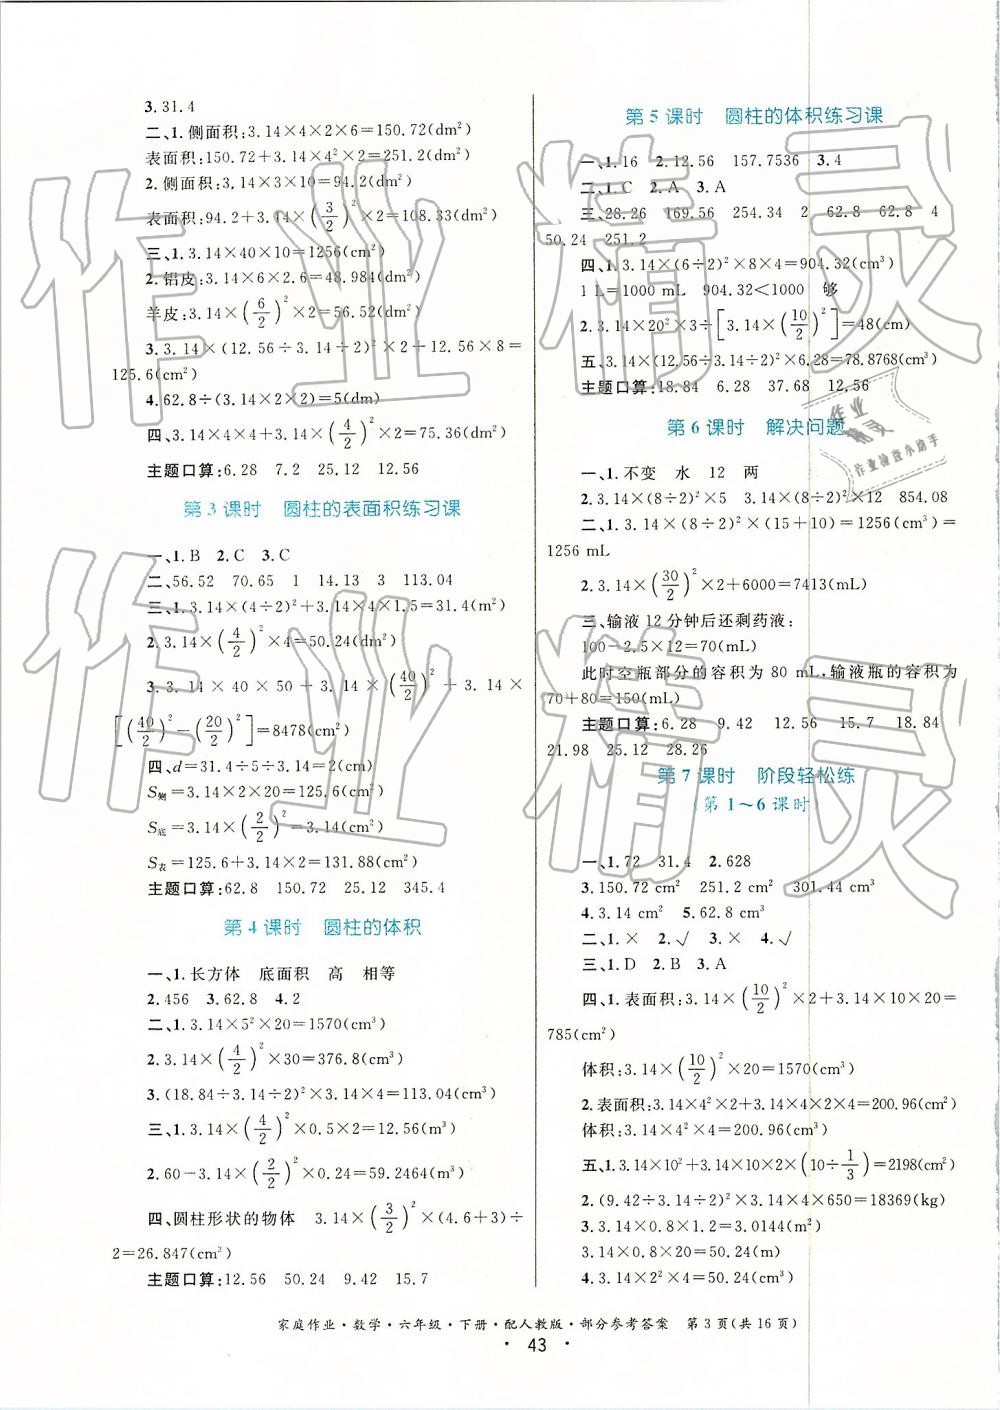 3.31.4
二、1.侧面积:3.14×4×2×6=150.72(dm²)
表面积:150.72+3.14×4²×2=251.2(dm²)
2.侧面积:3.14×3×10=94.2(dm²)
表面积:94.2+3.14×(3/2)²×2=108.33(dm²)
三、1.3.14×40×10=1256(cm²)
2.铝皮:3.14×6×2.6=48.984(dm²)
羊皮:3.14×(6/2)²×2=56.52(dm²)
3.3.14×(12.56÷3.14÷2)²×2+12.56×8=
125.6(cm²)
4.62.8÷(3.14×2×2)=5(dm)
四、3.14×4×4+3.14×(4/2)²×2=75.36(cm²)
主题口算:6.28 7.2 25.12 12.56
第3课时 圆柱的表面积练习课
一、1.B 2.C 3.C
二、56.52 70.65 1 14.13 3 113.04
三、1.3.14×(4÷2)²+3.14×4×1.5=31.4(m²)
2.3.14×(4/2)²×4=50.24(dm²)
3.3.14×40×50+3.14×(40/2)²+3.14×
[(40/2)²-(20/2)²]=8478(cm²)
四、d=31.4÷5÷3.14=2(cm)
S侧=3.14×2×20=125.6(cm²)
S底=3.14×(2/2)²=3.14(cm²)
S表=125.6+3.14×2=131.88(cm²)
主题口算:62.8 150.72 25.12 345.4
第4课时 圆柱的体积
一、1.长方体 底面积 高 相等
2.456 3.62.8 4.2
二、1.3.14×5²×20=1570(cm³)
2.3.14×(4/2)²×30=376.8(cm³)
3.(18.84÷3.14÷2)²×3.14×4=113.04(cm³)
三、1.3.14×(4/2)²×0.5×2=12.56(m³)
2.60-3.14×(2/2)²×0.24=59.2464(m³)
四、圆柱形状的物体 3.14×(3/2)²×(4.6+3)÷
2=26.847(cm³)
主题口算:12.56 50.24 9.42 15.7
第5课时 圆柱的体积练习课
一、1.16 2.12.56 157.7536 3.4
二、1.C 2.A 3.A
三、28.26 169.56 254.34 2 62.8 62.8 4
50.24 251.2
四、1.3.14×(6÷2)²×8×4=904.32(cm³)
1 L=1000 mL 904.32<1000 够
2.3.14×20²×3÷[3.14×(10/2)²]=48(cm)
五、3.14×(12.56÷3.14÷2)²×6.28=78.8768(cm³)
主题口算:18.84 6.28 37.68 12.56
第6课时 解决问题
一、1.不变 水 12 两
2.3.14×(8÷2)²×5 3.14×(8÷2)²×12 854.08
二、1.3.14×(8÷2)²×(15+10)=1256(cm³)=
1256 mL
2.3.14×(30/2)²×2+6000=7413(mL)
三、输液12分钟后还剩药液:
100-2.5×12=70(mL)
此时空瓶部分的容积为80 mL,输液瓶的容积为
70+80=150(mL)
主题口算:6.28 9.42 12.56 15.7 18.84
21.98 25.12 28.26
第7课时 阶段轻松练
(第1～6课时)
一、1.72 31.4 2.628
3.150.72 cm² 251.2 cm² 301.44 cm³
4.3.14 cm² 5.62.8 cm³
二、1.× 2.√ 3.× 4.√
三、1.D 2.B 3.A
四、1.表面积:3.14×(10/2)²×2+3.14×10×20=
785(cm²)
体积:3.14×(10/2)²×20=1570(cm³)
2.表面积:3.14×4²×2+3.14×4×2×4=200.96(cm²)
体积:3.14×4²×4=200.96(cm³)
五、1.3.14×10²+3.14×10×2×(10÷1/3)=2198(cm²)
2.(9.42÷3.14÷2)²×3.14×4×650=18369(kg)
3.3.14×0.8×1.2=3.0144(m²)
3.14×0.8×20=50.24(m)
4.3.14×2²×4=50.24(cm³)
家庭作业·数学·六年级·下册·配人教版·部分参考答案 第3页(共16页)
·43·
作业精灵
作业精灵
作业
精灵
作业检查小助手